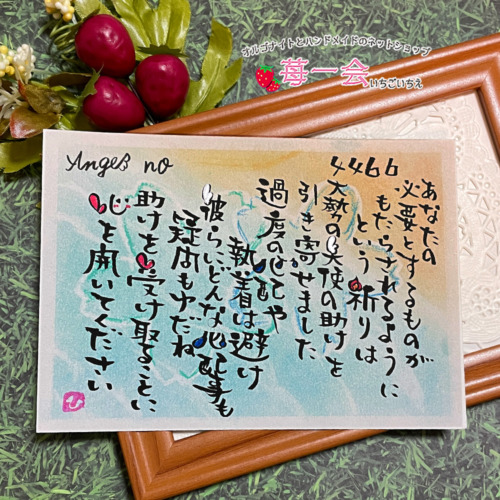 オルゴナイトとハンドメイドのネットショップ
苺一会
いちごいちえ
Angel no
4466
あなたの
必要とするものが
もたらされるように
という祈りは
大勢の天使の助けを
引き寄せました
過度の心配や
執着は避け
彼らにどんな心配事も
疑問もゆだね
助けを受け取ることに
心を開いてください